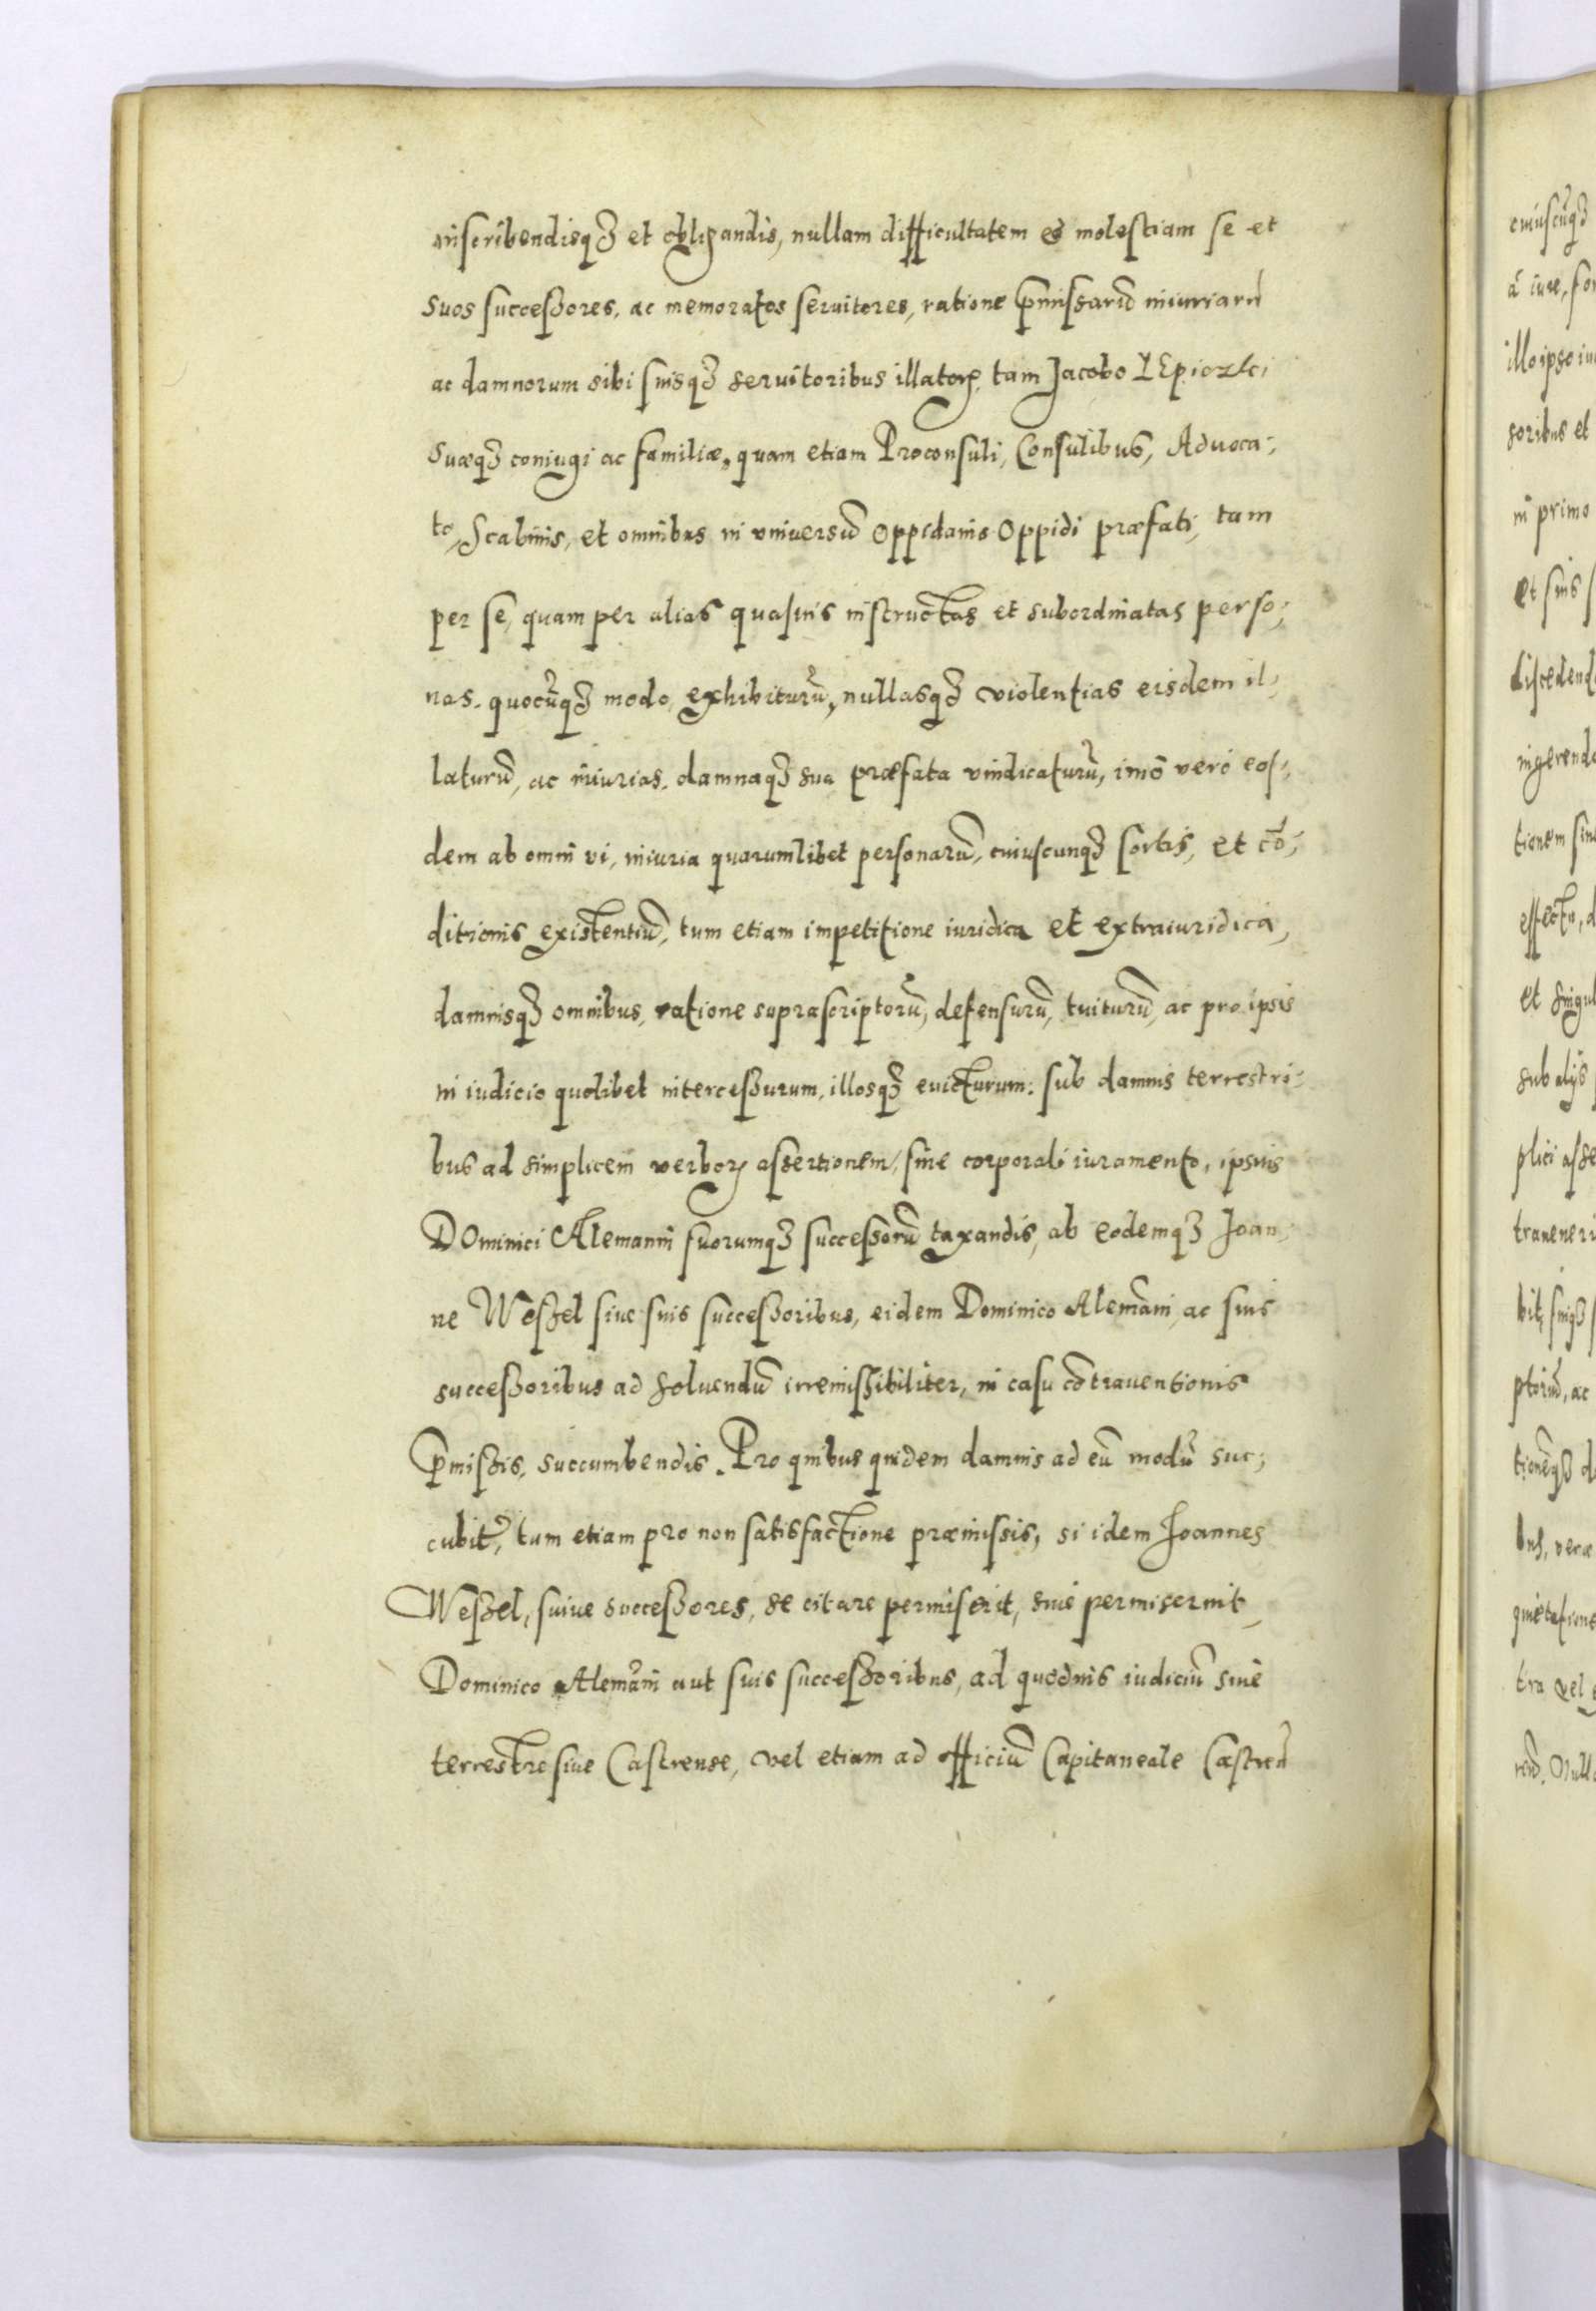 inscribendisq3 et obligandis, nullam difficultatem et molestiam se et
suos successores, ac memoratos seruitores, ratione p̄missarū iniuriarū
ac damnorum sibi suisq3 seruitoribus illatorꝝ, tam Jacobo
suæq3 coniugi ac familiæ, quam etiam Proconsuli, Consulibus, Aduoca-
to, Scabinis, et omnibus in vniversū Oppidanis Oppidi præfati, tam
per se, quam per alias quasuis instructas et subordinatas perso-
nas, quocūq3 modo, exhibiturū, nullasq3 violentias eisdem il-
laturū, ac iniurias, damnaq3 sua præfata vindicaturū, imò verò eos-
dem ab omni vi, iniuria quarumlibet personarū, cuiuscunq3 sortis, et cō-
ditionis existentiū, tum etiam impetitione iuridica et extraiuridica,
damnisq3 omnibus, ratione suprascriptorū, defensurū, tuiturū, ac pro ipsis
in iudicio quolibet intercessurum, illosq3 euicturum: sub damnis terrestri-
bus ad simplicem verborꝝ assertionem, sine corporali iuramento, ipsius
DOminici Alemanni suorumq3 successorū taxandis, ab eodemq3 Joan-
ne Weszel siue suis successoribus, eidem Dominico Alemāni, ac suis
successoribus ad soluendū irremissibiliter, in casu cōtrauentionis
p̄missis, succumbendis. Pro quibus quidem damnis ad eū modū suc-
cubitˀ, tum etiam pro non satisfactione præmissis, si idem Joannes
Weszel, suiue successores, se citare permiserit, siue permiserint,
Dominico Alemāni aut suis successoribus, ad quoduis iudiciū siue
terrestre siue Castrense, vel etiam ad officiū Capitaneale Castreñ
cuiuscūq3
illo ipso
soribus et
in primo
et suis
discedend
ingerend
tionem
effectu,
et singul
sub alijs
plici asse
ptorū, ac
tionēq3
tra vel